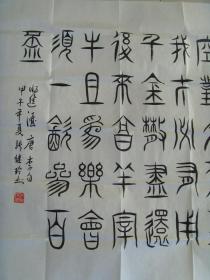 空對
我才必有用
千金散盡還
復來亯羊宰
牛且為樂會
須一飲參百
杯
將進酒 唐 李白
甲午年夏